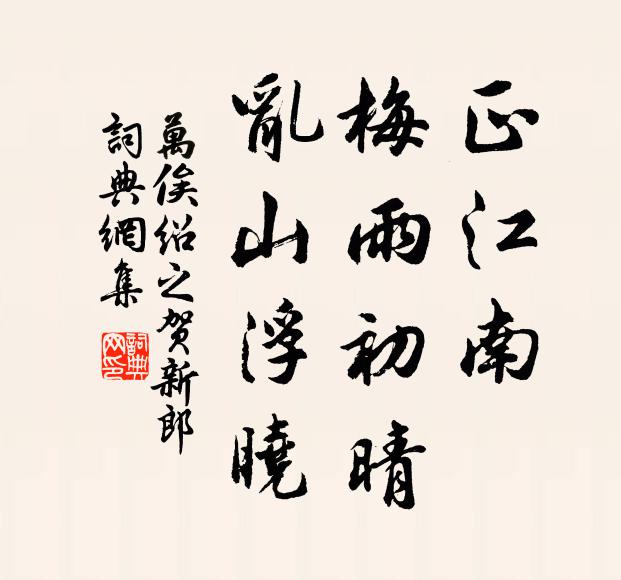 正江南
梅雨初晴
亂山浮曉
萬俟紹之賀新郎
詞典網集
詞典
网印